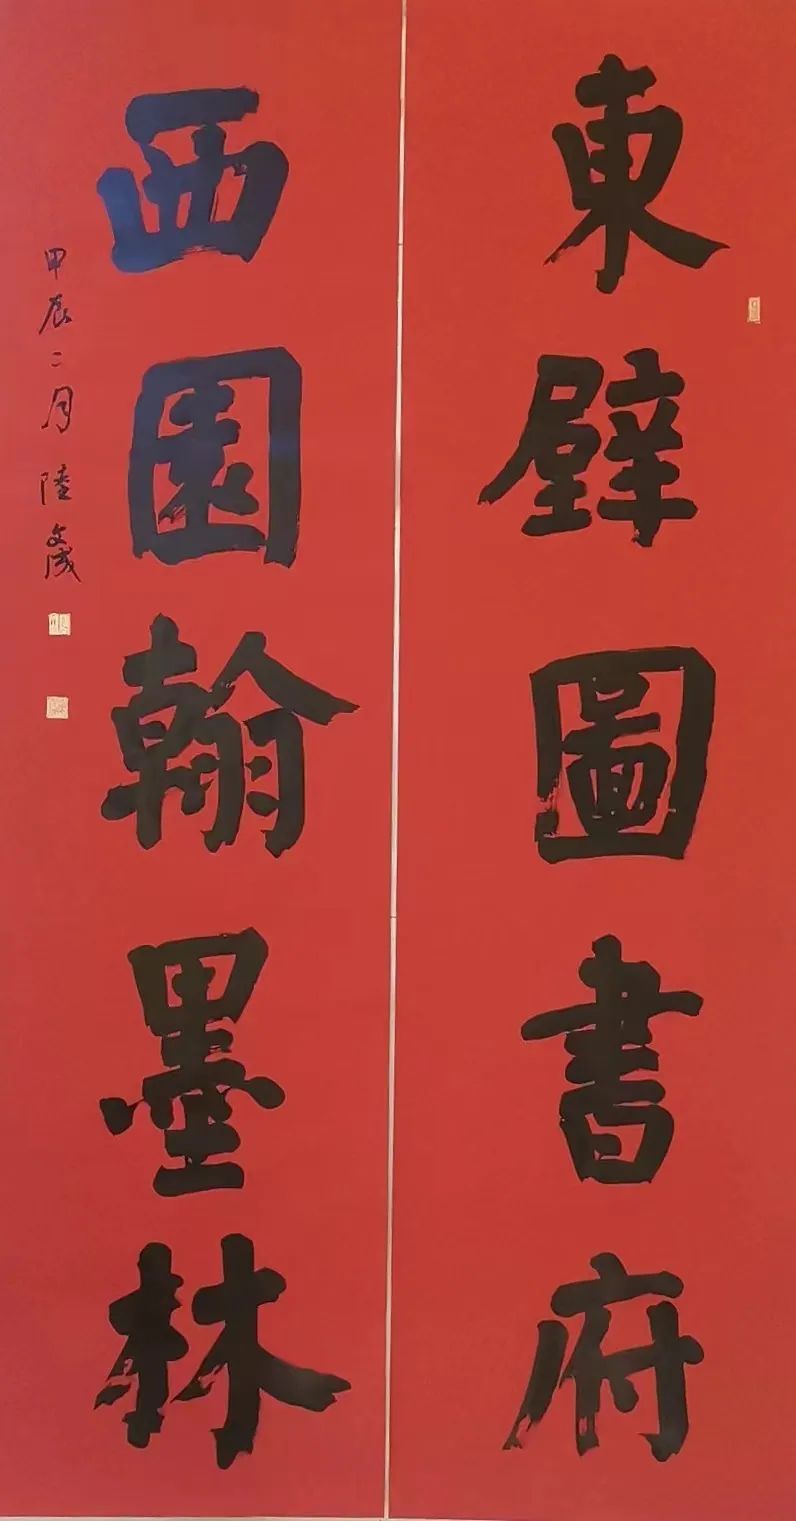 東壁圖書府
西園翰墨林
甲辰二月陸